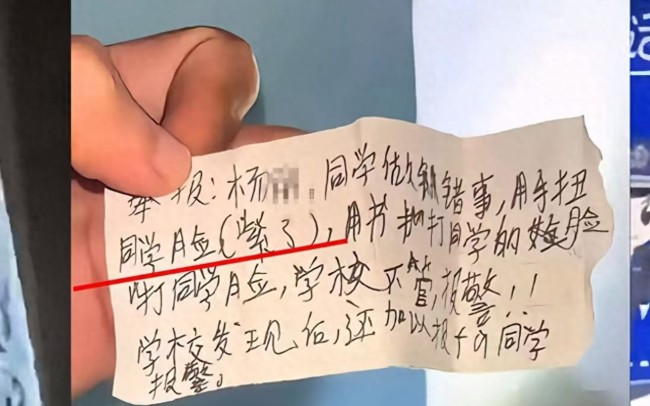 举报：杨 同学做错事，用手扭
同学脸(紫了)，用书打同学的脸
打同学脸，学校不管，报警！！
学校发现后，还加以报 同学
报警。